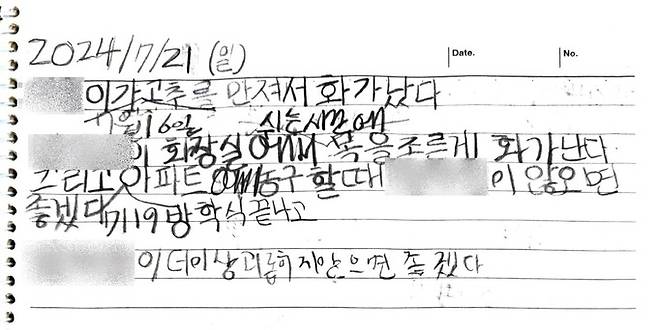 2024/7/21 (일)
Date.
No.
이가 고추를 만져서 화가 났다
7월 16일 쉬는시간에
이 화장실에서 목을 조르게 화가난다
그리고 아파트에서 농구 할때 이 않오면
좋겠다 7/19 방학식끝나고
이 더이상 괴롭히지않으면 좋겠다